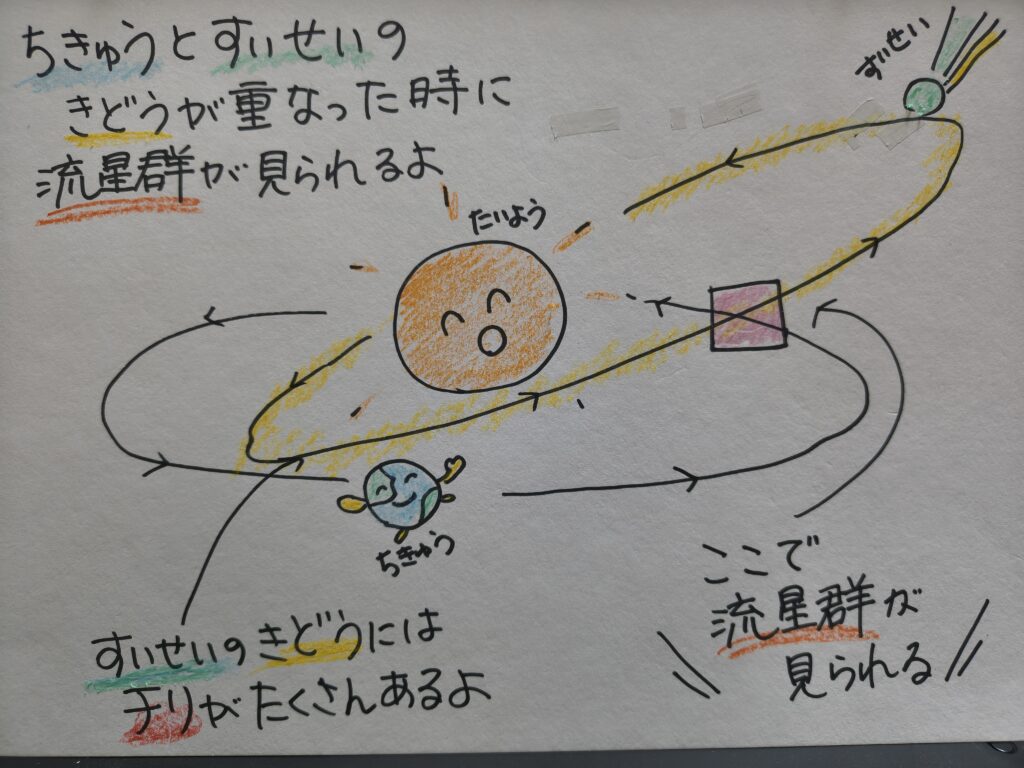 ちきゅうとすいせいの
きどうが重なった時に
流星群が見られるよ
すいせい
たいよう
ちきゅう
ここで
流星群が
見られる
すいせいのきどうには
チリがたくさんあるよ